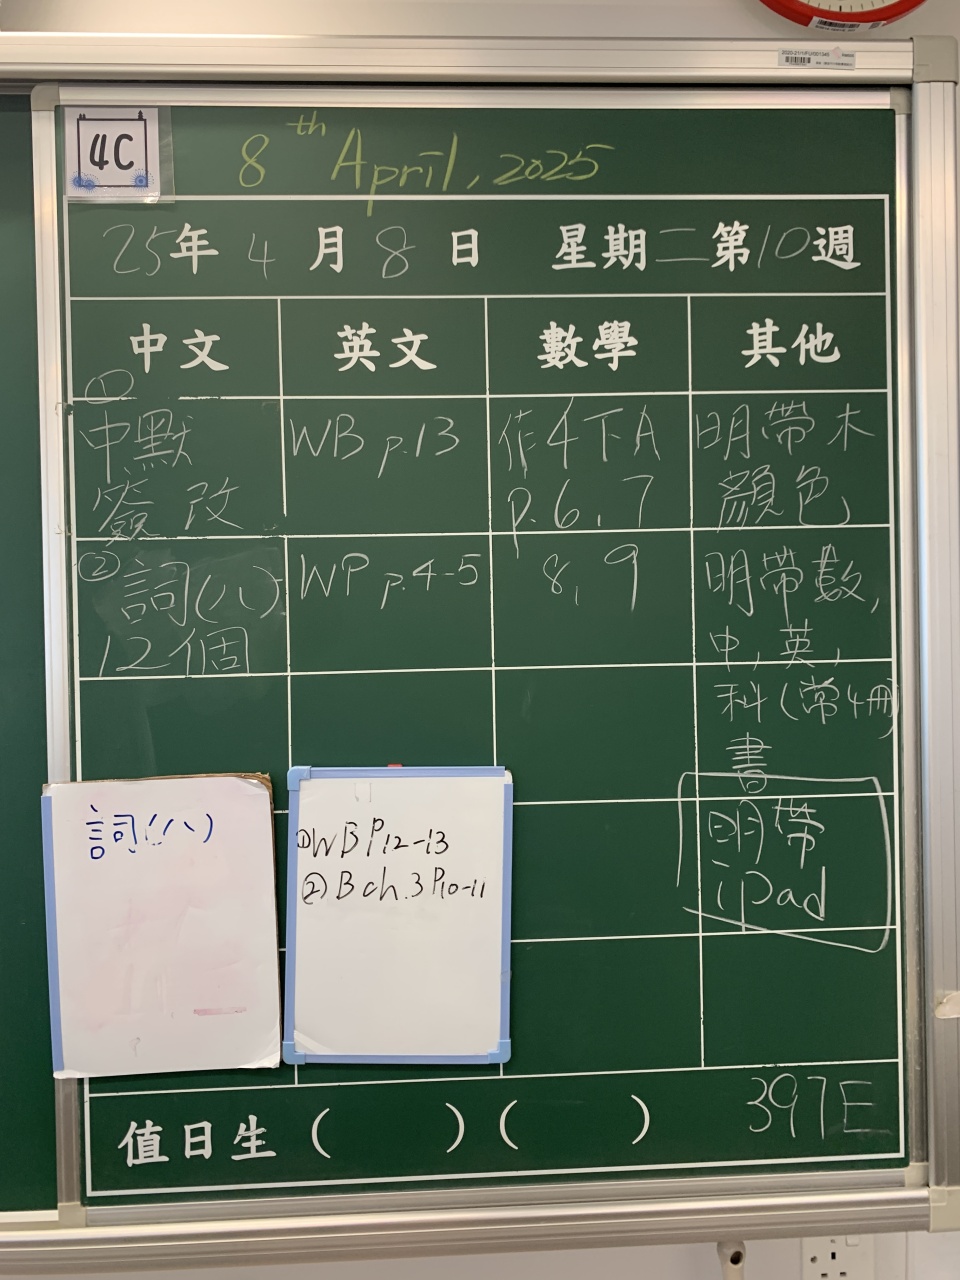 4C
8th April, 2025
25年4月8日 星期二第10週
中文 英文 數學 其他
①
中默
簽改
WB p.13
作4下A
p.6, 7
明帶木
顏色
②
詞(八)
12個
WP p.4-5
8, 9
明帶數,
中, 英,
科(常4冊)
書
明帶
iPad
詞(八)
①WB P12-13
②B ch.3 P10-11
值日生 ( ) ( )
397E